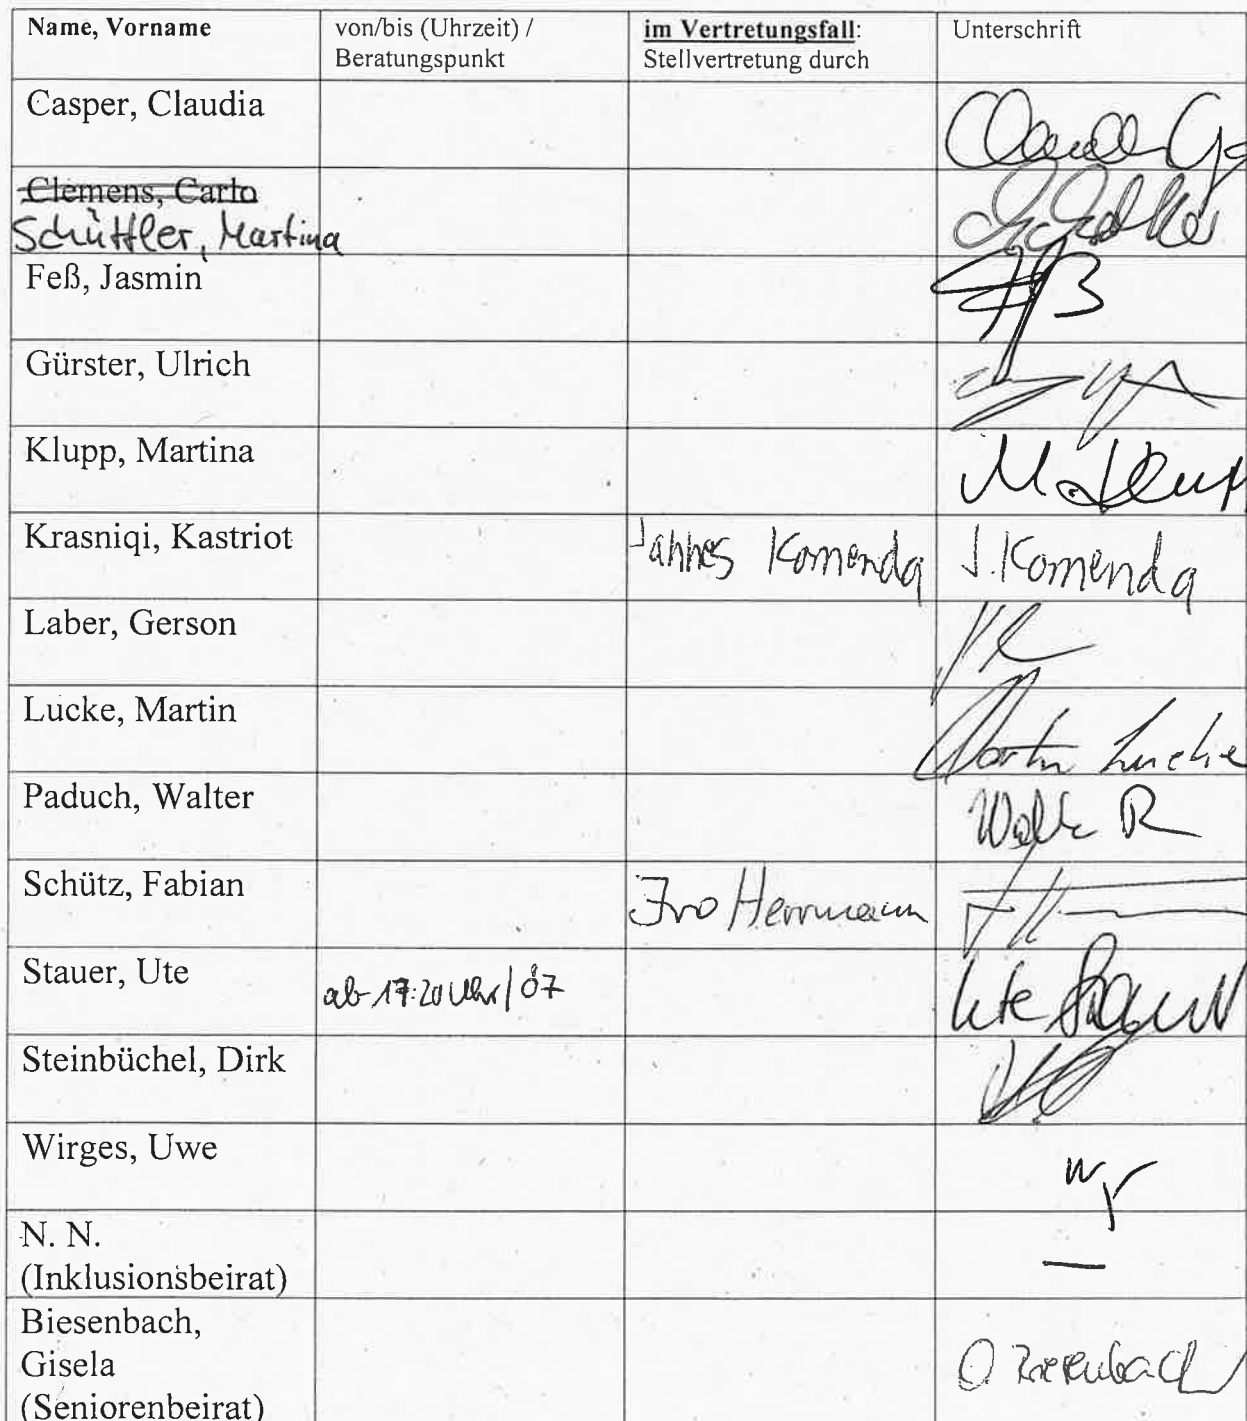 Name, Vorname von/bis (Uhrzeit) / im Vertretungsfall: Unterschrift
Beratungspunkt Stellvertretung durch
Casper, Claudia
Clemens, Carlo
Schüttler, Martina
Feß, Jasmin
Gürster, Ulrich
Klupp, Martina M. Klupp
Krasniqi, Kastriot Jannes Komenda J. Komenda
Laber, Gerson
Lucke, Martin Martin Lucke
Paduch, Walter
Schütz, Fabian Ivo Herrmann
Stauer, Ute ab 17:20 Uhr / Ö7 Ute Stauer
Steinbüchel, Dirk
Wirges, Uwe
N. N. —
(Inklusionsbeirat)
Biesenbach,
Gisela G. Biesenbach
(Seniorenbeirat)